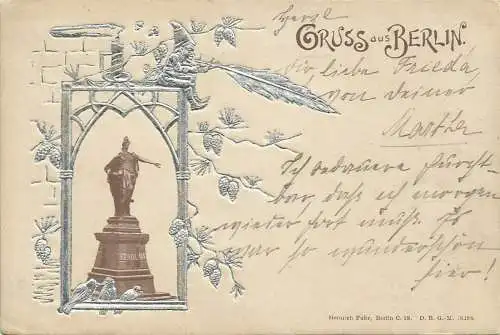 GRUSS aus BERLIN.
Herzl
Dir, liebe Frieda,
von deiner
Martha
Ich bedauere furcht-
bar, daß ich morgen
wieder fort muß. Es
war so wunderschön
hier!
BEROLINA
Heinrich Fuhr, Berlin C. 19. D. R. G.-M.